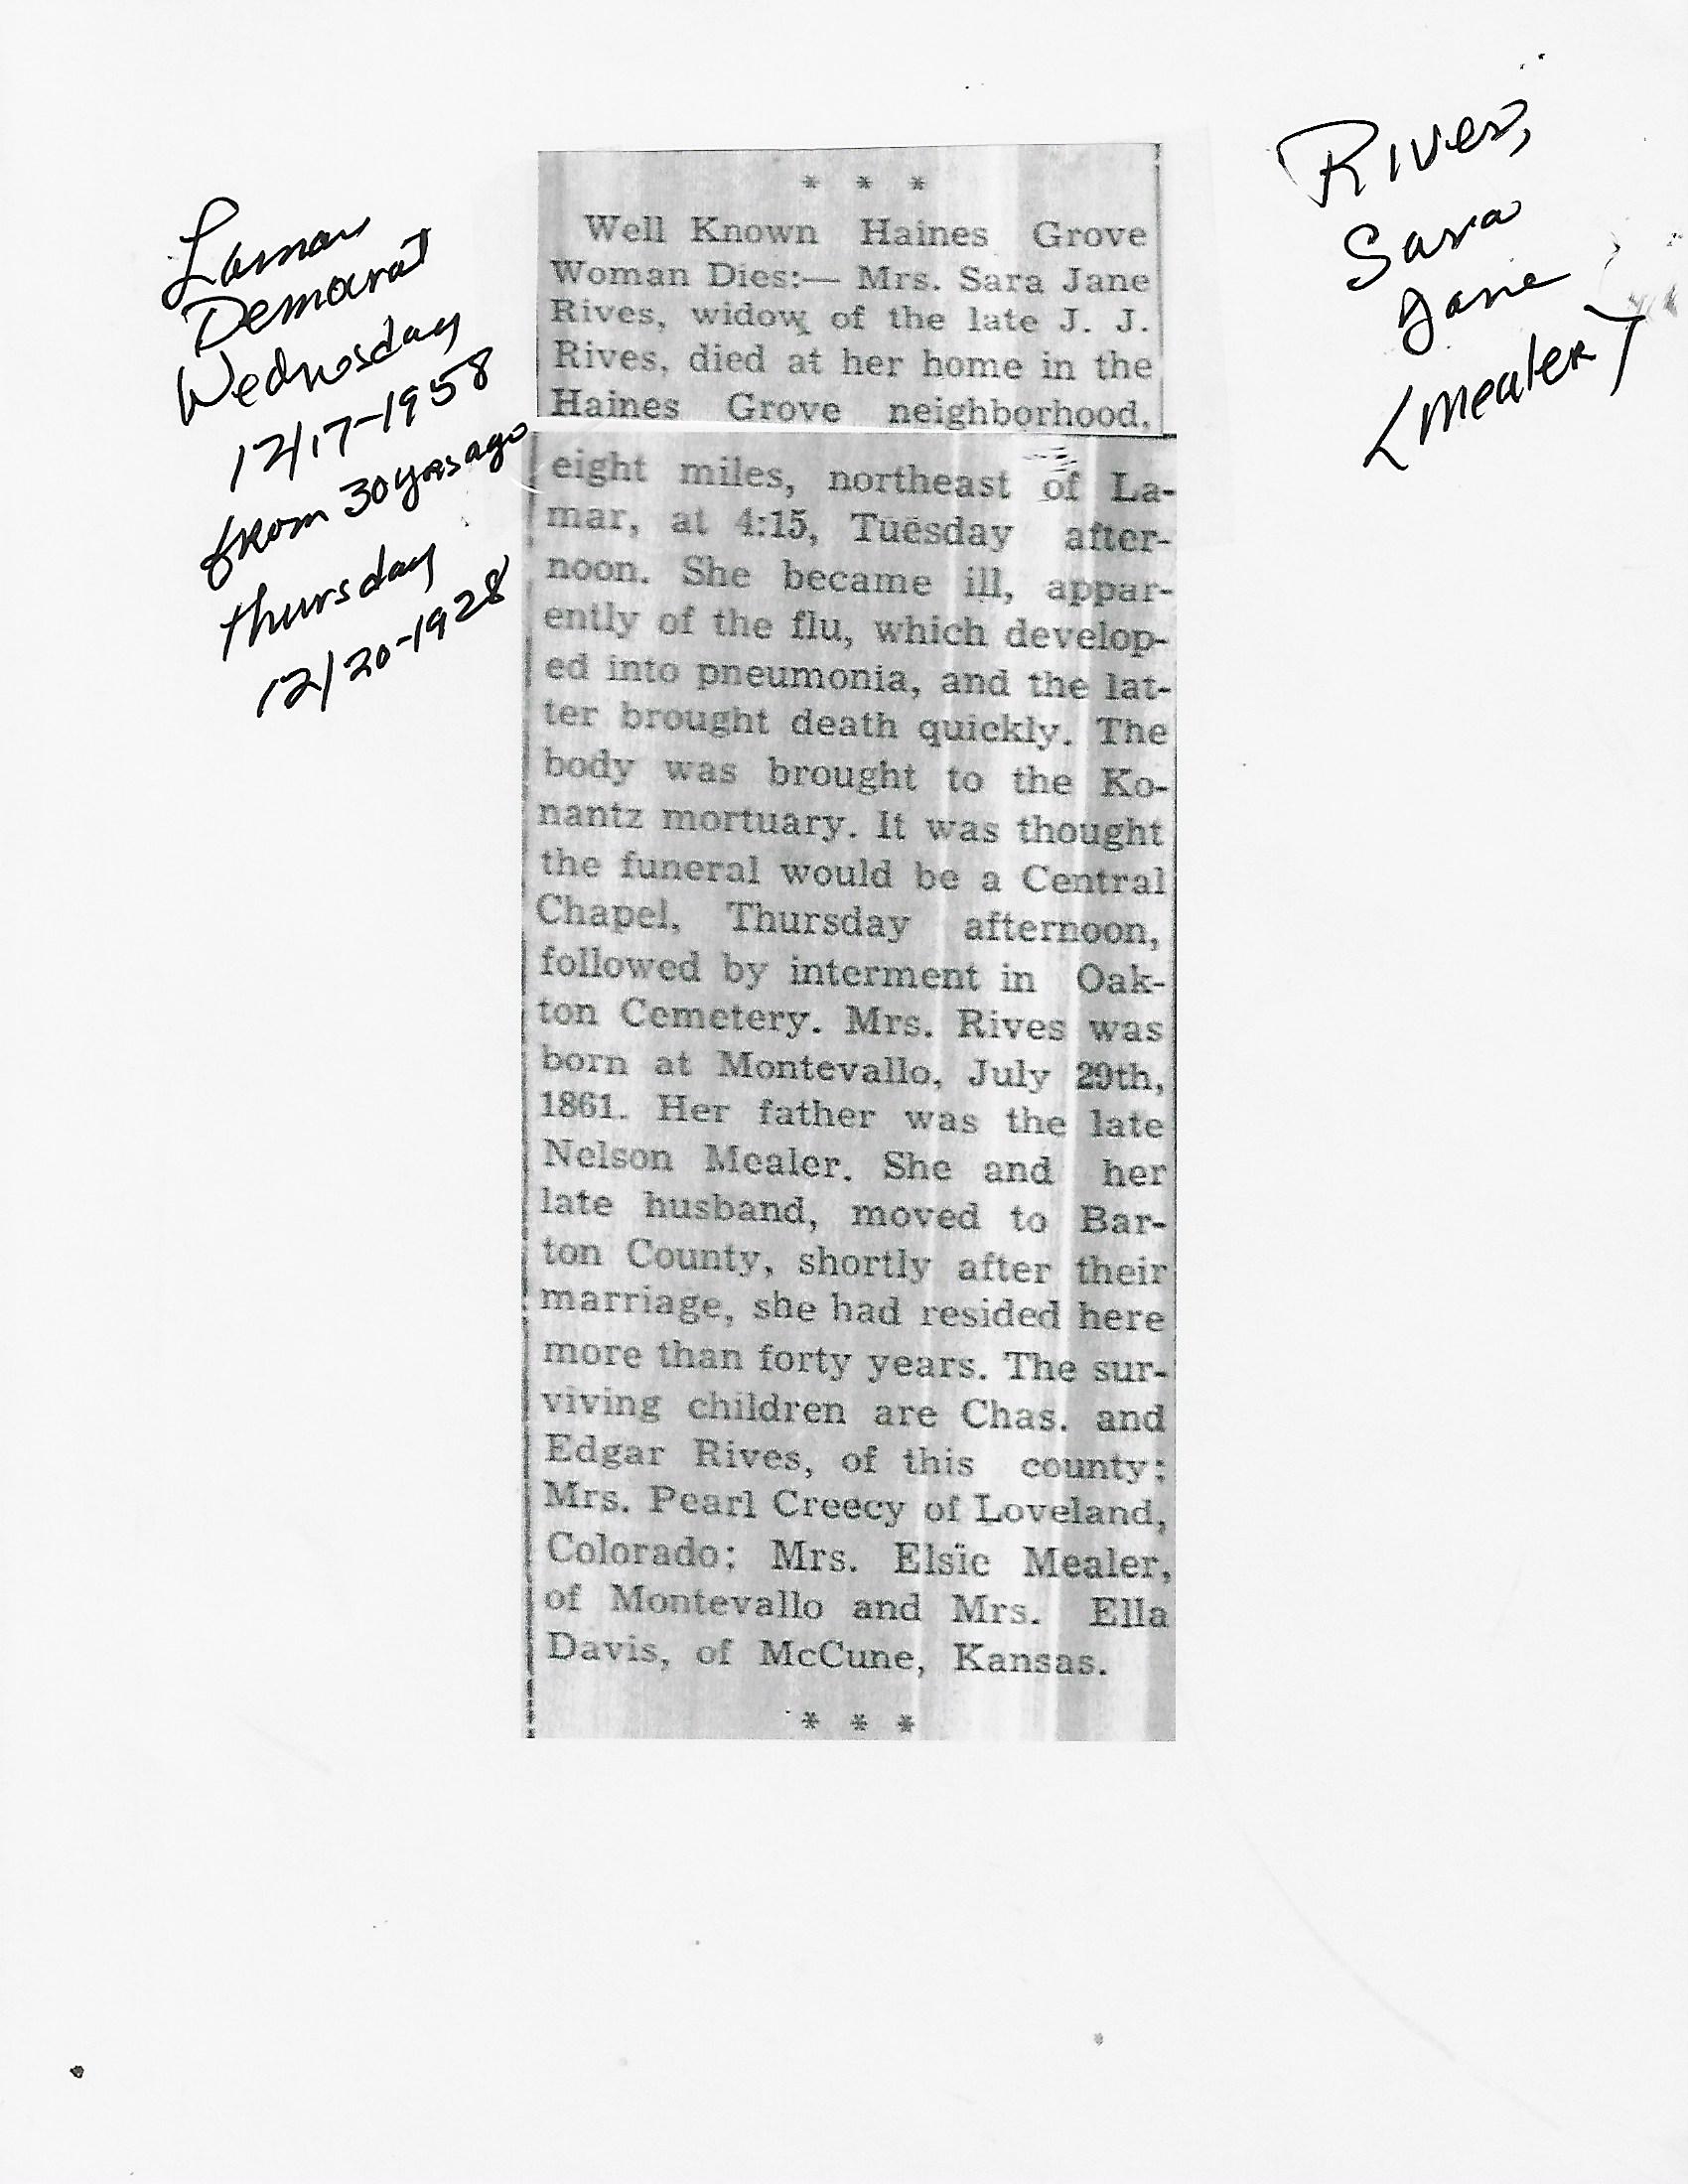 Lamar
Democrat
Wednesday
12/17-1958
from 30 yrs ago
Thursday
12/20-1928
Rives,
Sara
Jane
(Mealer)
* * *
Well Known Haines Grove
Woman Dies:— Mrs. Sara Jane
Rives, widow of the late J. J.
Rives, died at her home in the
Haines Grove neighborhood,
eight miles, northeast of La-
mar, at 4:15, Tuesday after-
noon. She became ill, appar-
ently of the flu, which develop-
ed into pneumonia, and the lat-
ter brought death quickly. The
body was brought to the Ko-
nantz mortuary. It was thought
the funeral would be a Central
Chapel, Thursday afternoon,
followed by interment in Oak-
ton Cemetery. Mrs. Rives was
born at Montevallo, July 29th,
1861. Her father was the late
Nelson Mealer. She and her
late husband, moved to Bar-
ton County, shortly after their
marriage, she had resided here
more than forty years. The sur-
viving children are Chas. and
Edgar Rives, of this county;
Mrs. Pearl Creecy of Loveland,
Colorado; Mrs. Elsie Mealer,
of Montevallo and Mrs. Ella
Davis, of McCune, Kansas.
* * *